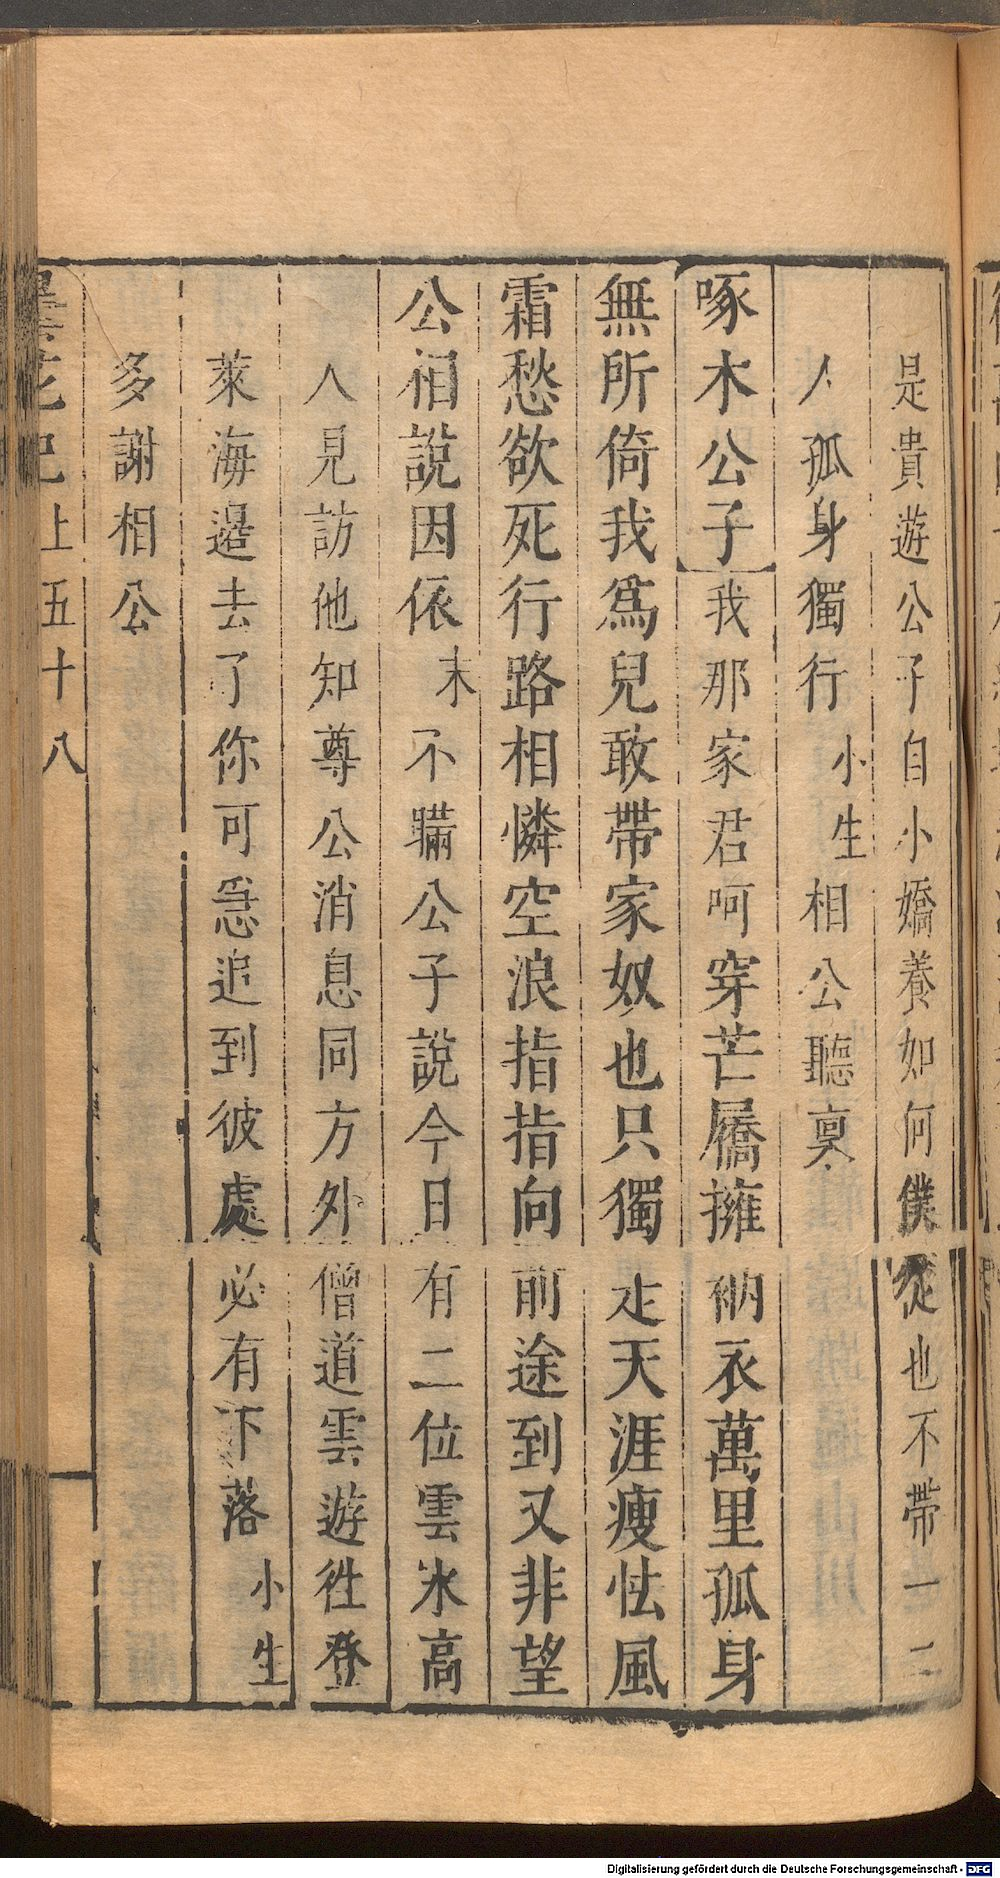 是貴遊公子自小嬌養如何僕從也不帶一二
人孤身獨行小生相公聽禀
啄木公子我那家君呵穿芒屩擁衲衣萬里孤身
無所倚我爲兒敢帶家奴也只獨走天涯瘦怯風
霜愁欲死行路相憐空浪指指向前途到又非望
公相說因依末不瞞公子說今日有二位雲水高
人見訪他知尊公消息同方外僧道雲遊徃登
萊海邉去了你可急追到彼處必有下落小生
多謝相公
曇花記上五十八
Digitalisierung gefördert durch die Deutsche Forschungsgemeinschaft - DFG